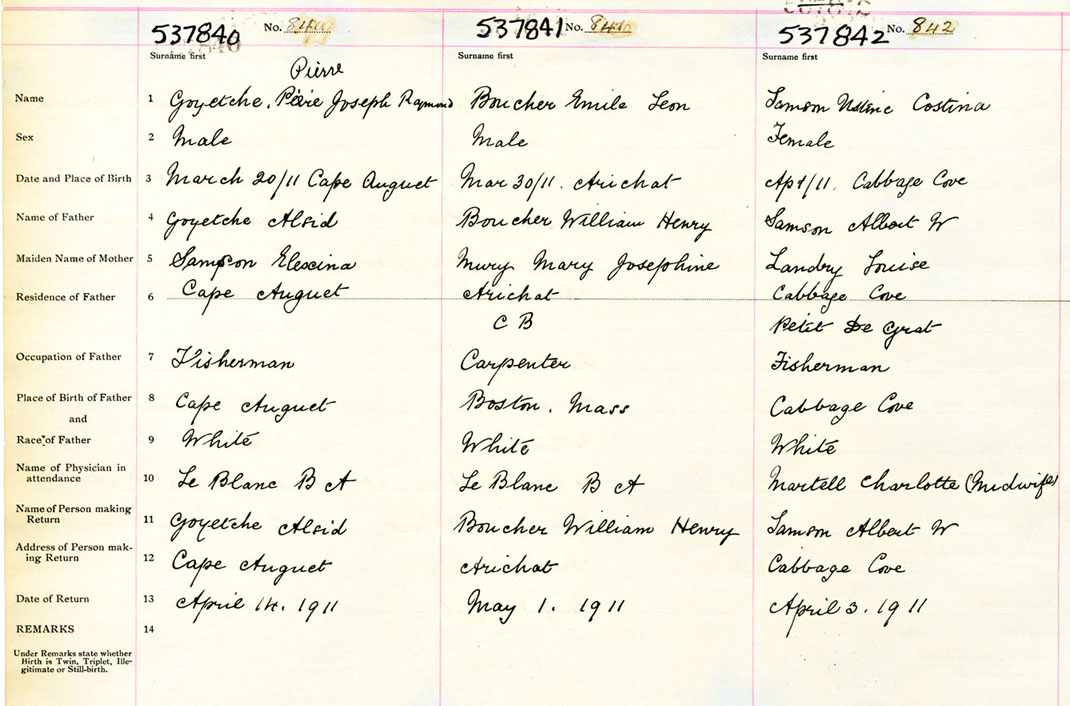 537840 No. 840
537841 No. 841
537842 No. 842
Surname first Surname first Surname first
Pierre
Name 1 Goyetche, Pierre Joseph Raymond Boucher Emile Leon Samson Costina
Sex 2 Male Male Female
Date and Place of Birth 3 March 20/11 Cape Auguet Mar 30/11. Arichat Ap 1/11. Cabbage Cove
Name of Father 4 Goyetche Alsid Boucher William Henry Samson Albert W
Maiden Name of Mother 5 Sampson Elescina Mury Mary Josephine Landry Louise
Residence of Father 6 Cape Auguet Arichat Cabbage Cove
C B Petit De Grat
Occupation of Father 7 Fisherman Carpenter Fisherman
Place of Birth of Father 8 Cape Auguet Boston, Mass Cabbage Cove
and
Race of Father 9 White White White
Name of Physician in
attendance 10 Le Blanc B A Le Blanc B A Martell Charlotte (Midwife)
Name of Person making
Return 11 Goyetche Alsid Boucher William Henry Samson Albert W
Address of Person mak-
ing Return 12 Cape Auguet Arichat Cabbage Cove
Date of Return 13 April 14. 1911 May 1. 1911 April 3. 1911
REMARKS 14
Under Remarks state whether
Birth is Twin, Triplet, Ille-
gitimate or Still-birth.